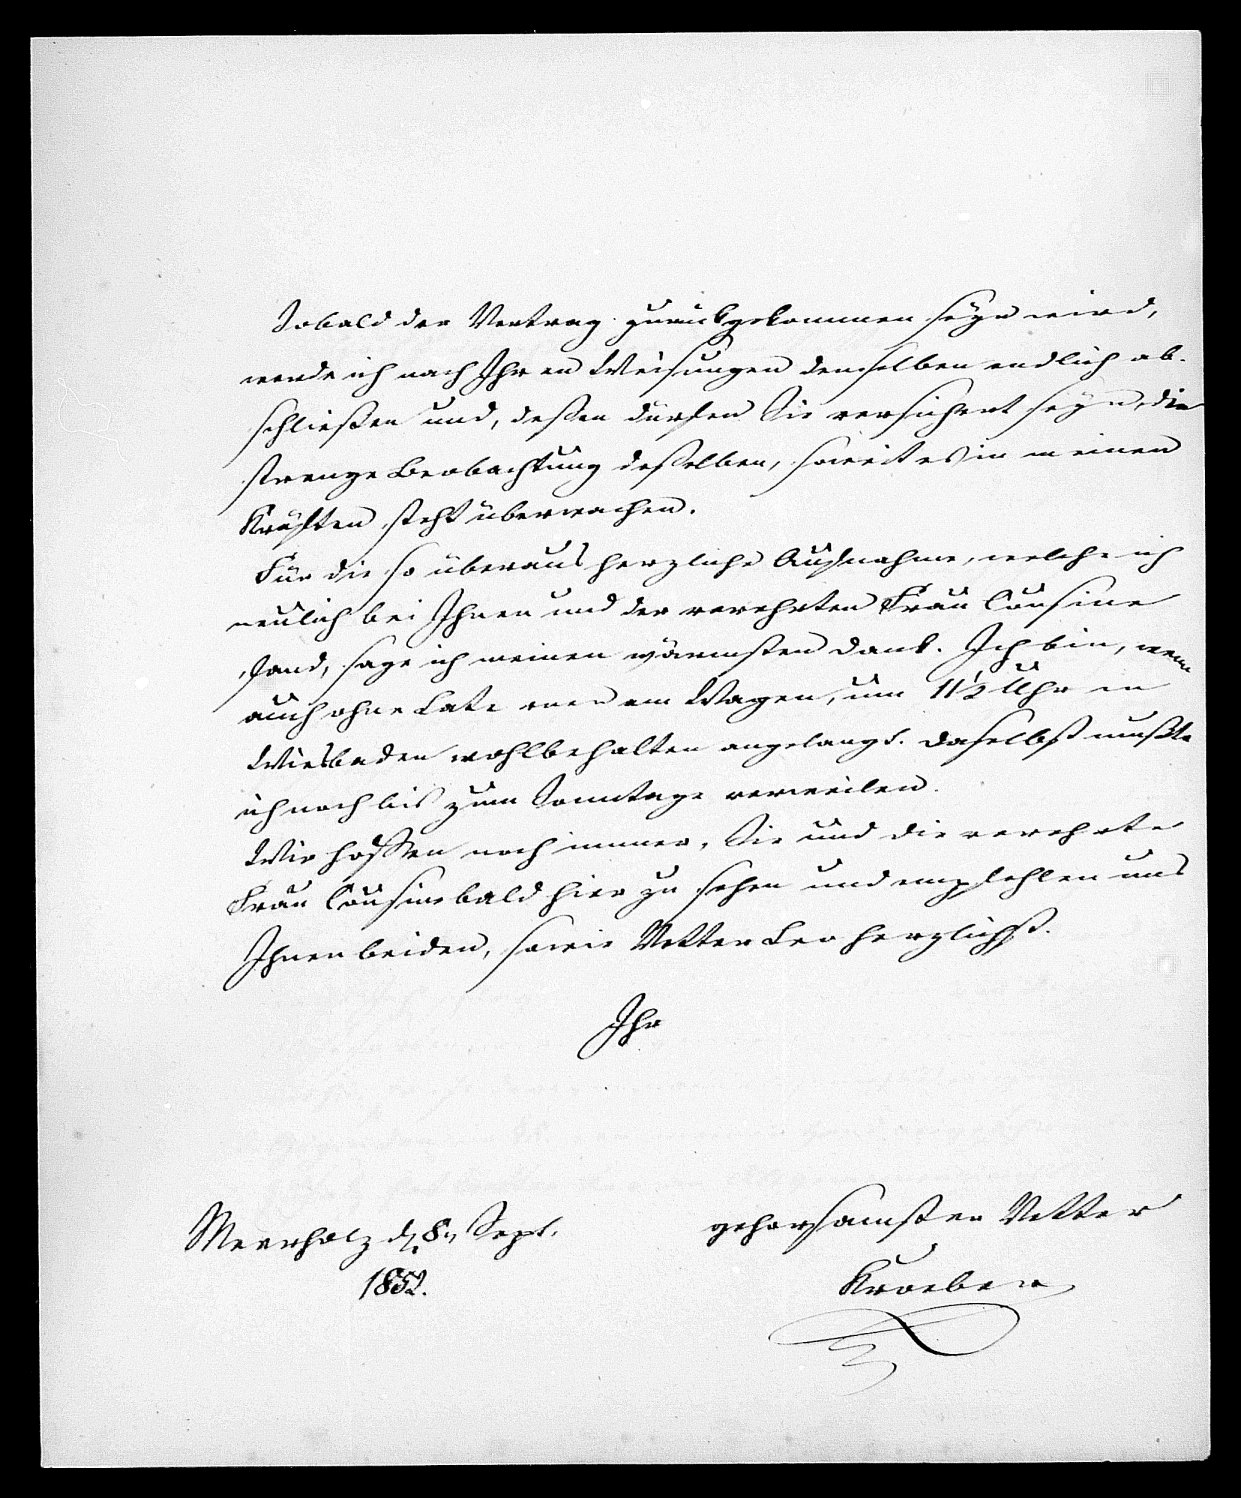 Sobald der Vertrag zurückgekommen seyn wird,
werde ich nach Ihren Weisungen denselben endlich ab-
schließen und, deßen dürfen Sie versichert seyn, die
strenge Beobachtung deßelben, soweit es in meinen
Kräften steht überwachen.
Für die so überaus herzliche Aufnahme, welche ich
neulich bei Ihnen und der verehrten Frau Cousine
fand, sage ich meinen wärmsten Dank. Ich bin, wenn
auch ohne Laternen am Wagen, um 11½ Uhr in
Wiesbaden wohlbehalten angelangt. Daselbst mußte
ich noch bis zum Sonntage verweilen.
Wir hoffen noch immer, Sie und die verehrte
Frau Cousine bald hier zu sehen und empfehlen uns
Ihnen beiden, sowie Vetter Leo herzlichst.
Ihr
gehorsamster Vetter
Kroeber
Meerholz d. 8n Sept.
1852.